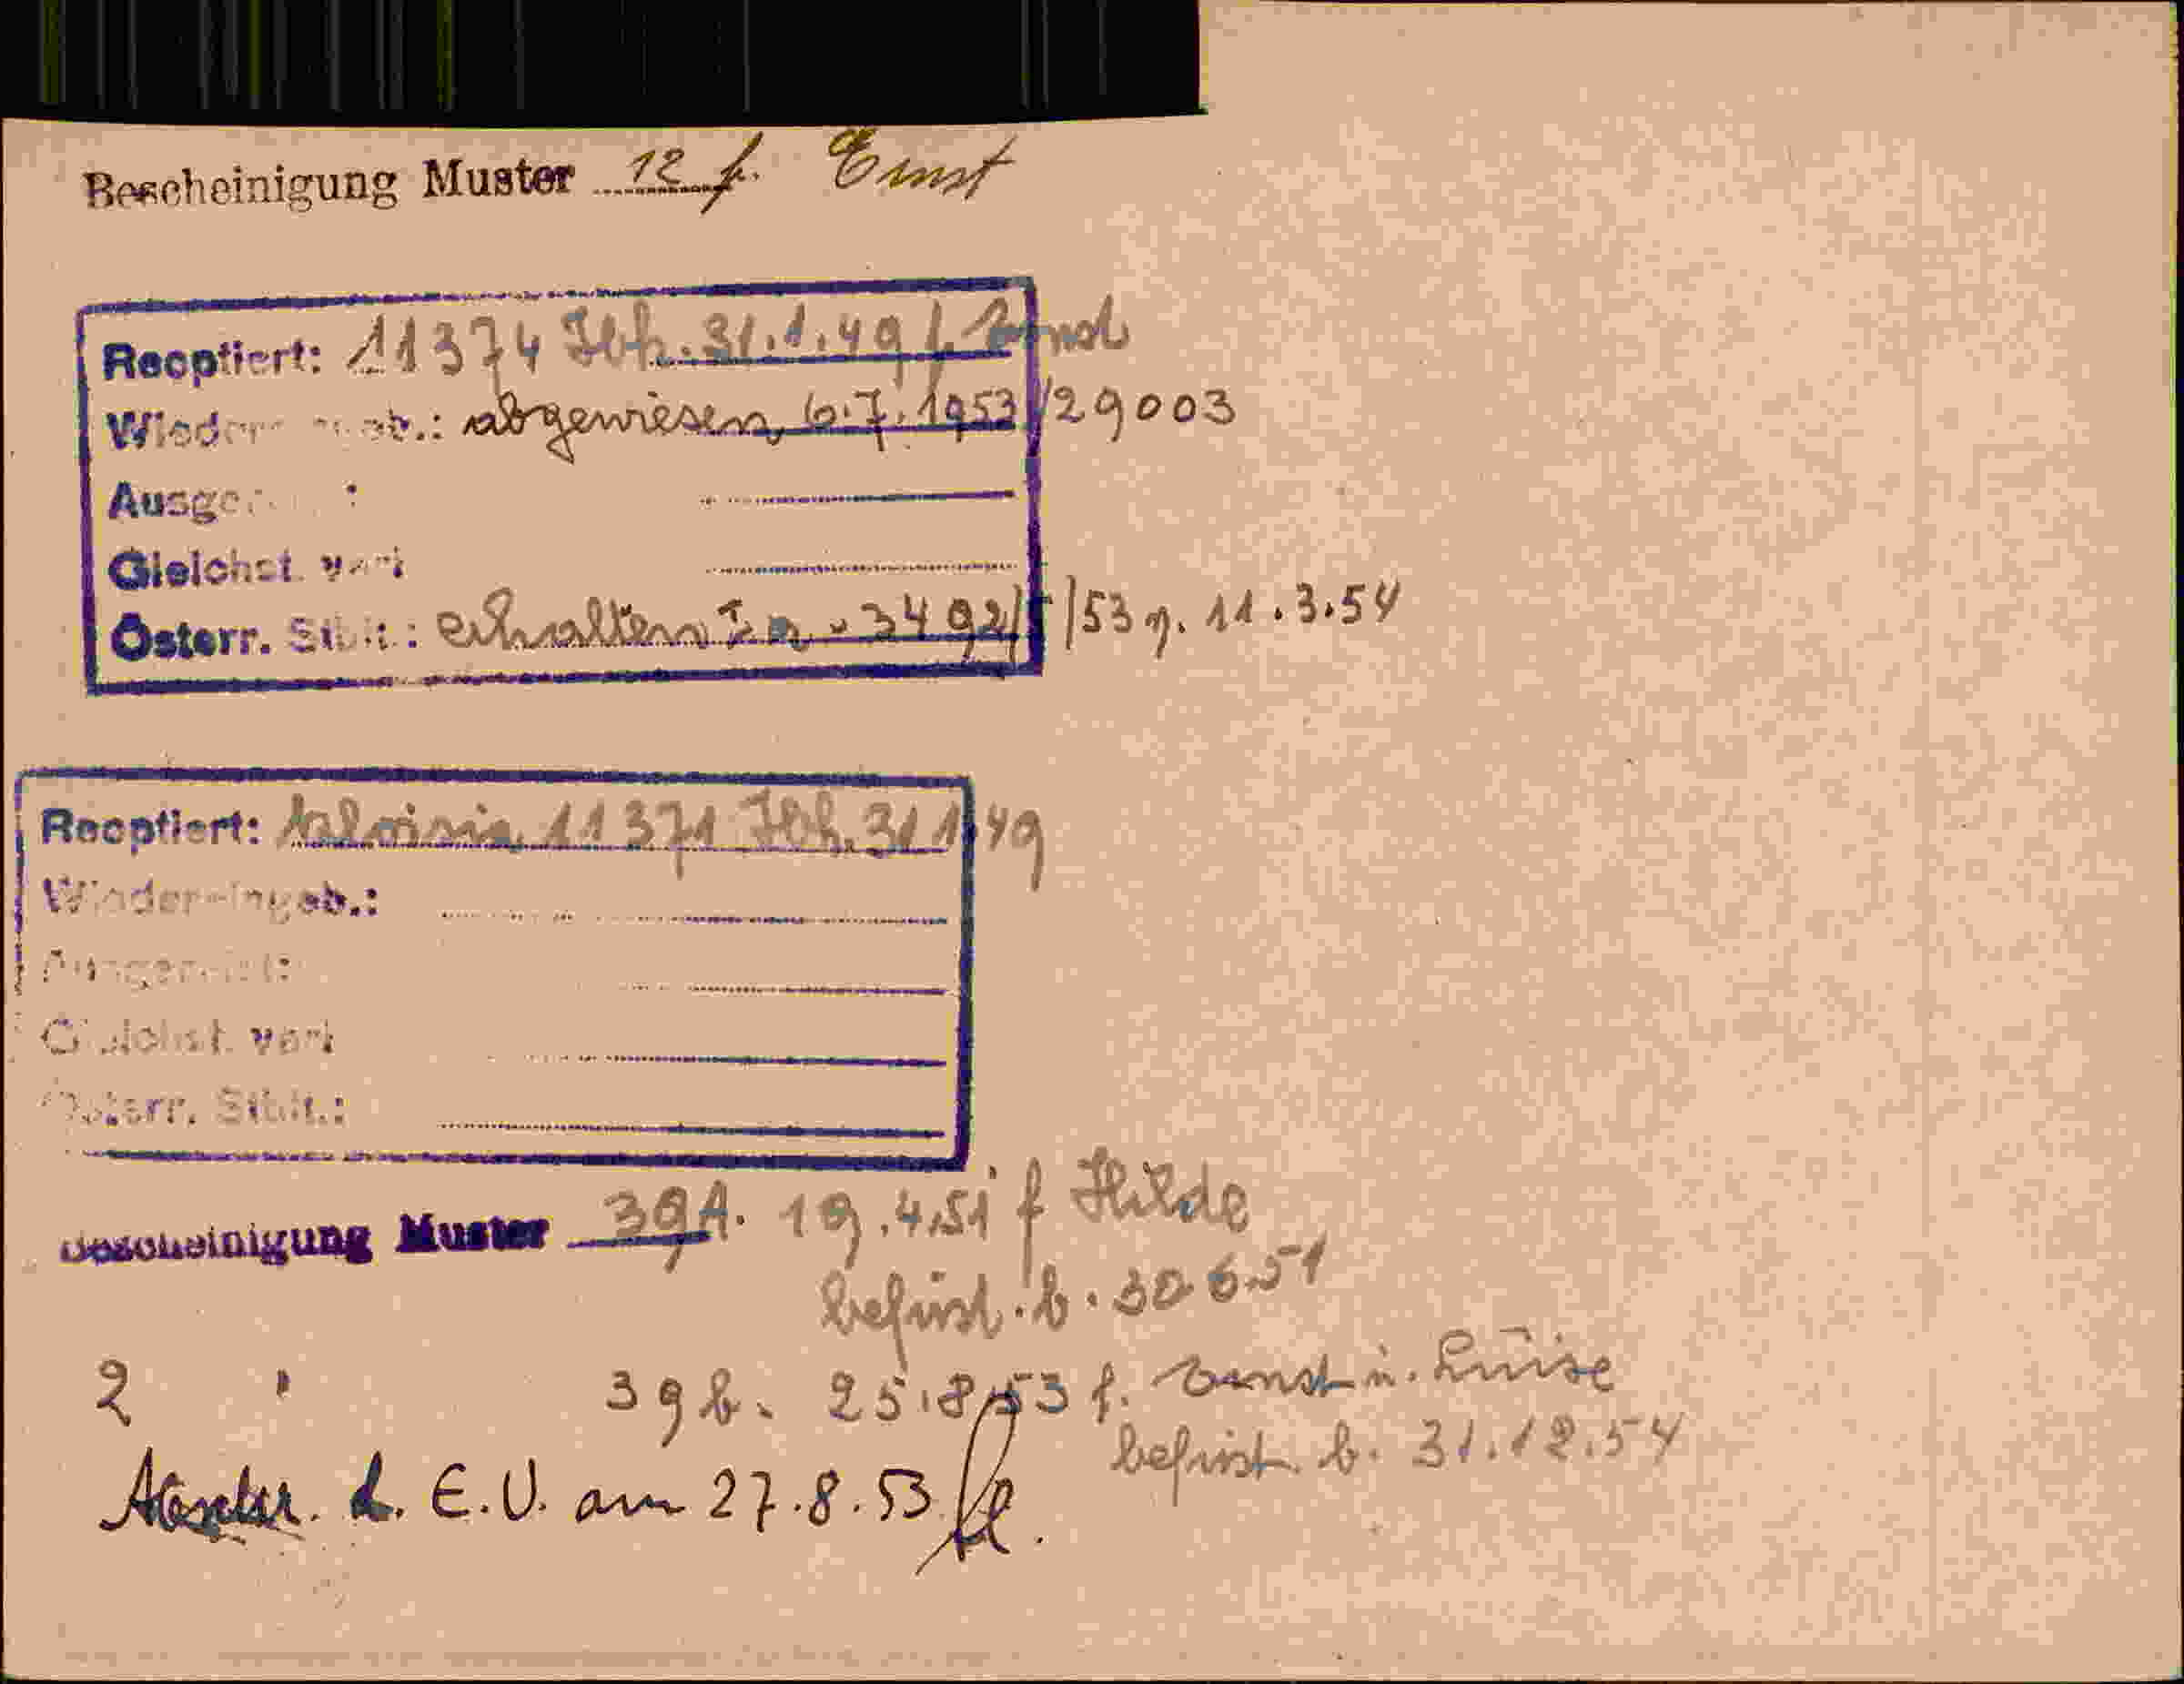 Bescheinigung Muster 12 f. Ernst
Reoptiert: 11374 Jbk. 31.1.49 f. Ernst
abgewiesen 6.7.1953 /29003
Gleichst.
Österr. Stbü.: erhalten 3492/ /53 v. 11.3.54
Reoptiert: Aloisia 11371 Jbk. 31 1 49
Wiedereingeb.:
Ausgereist:
Gleichst.
Österr. Stbü.:
Bescheinigung Muster 39A. 19.4.51 f Hilde
befrist. b. 30.6.51
2 " 39b. 25.8.53 f. Ernst u. Luise
befrist. b. 31.12.54
d. E.V. am 27.8.53